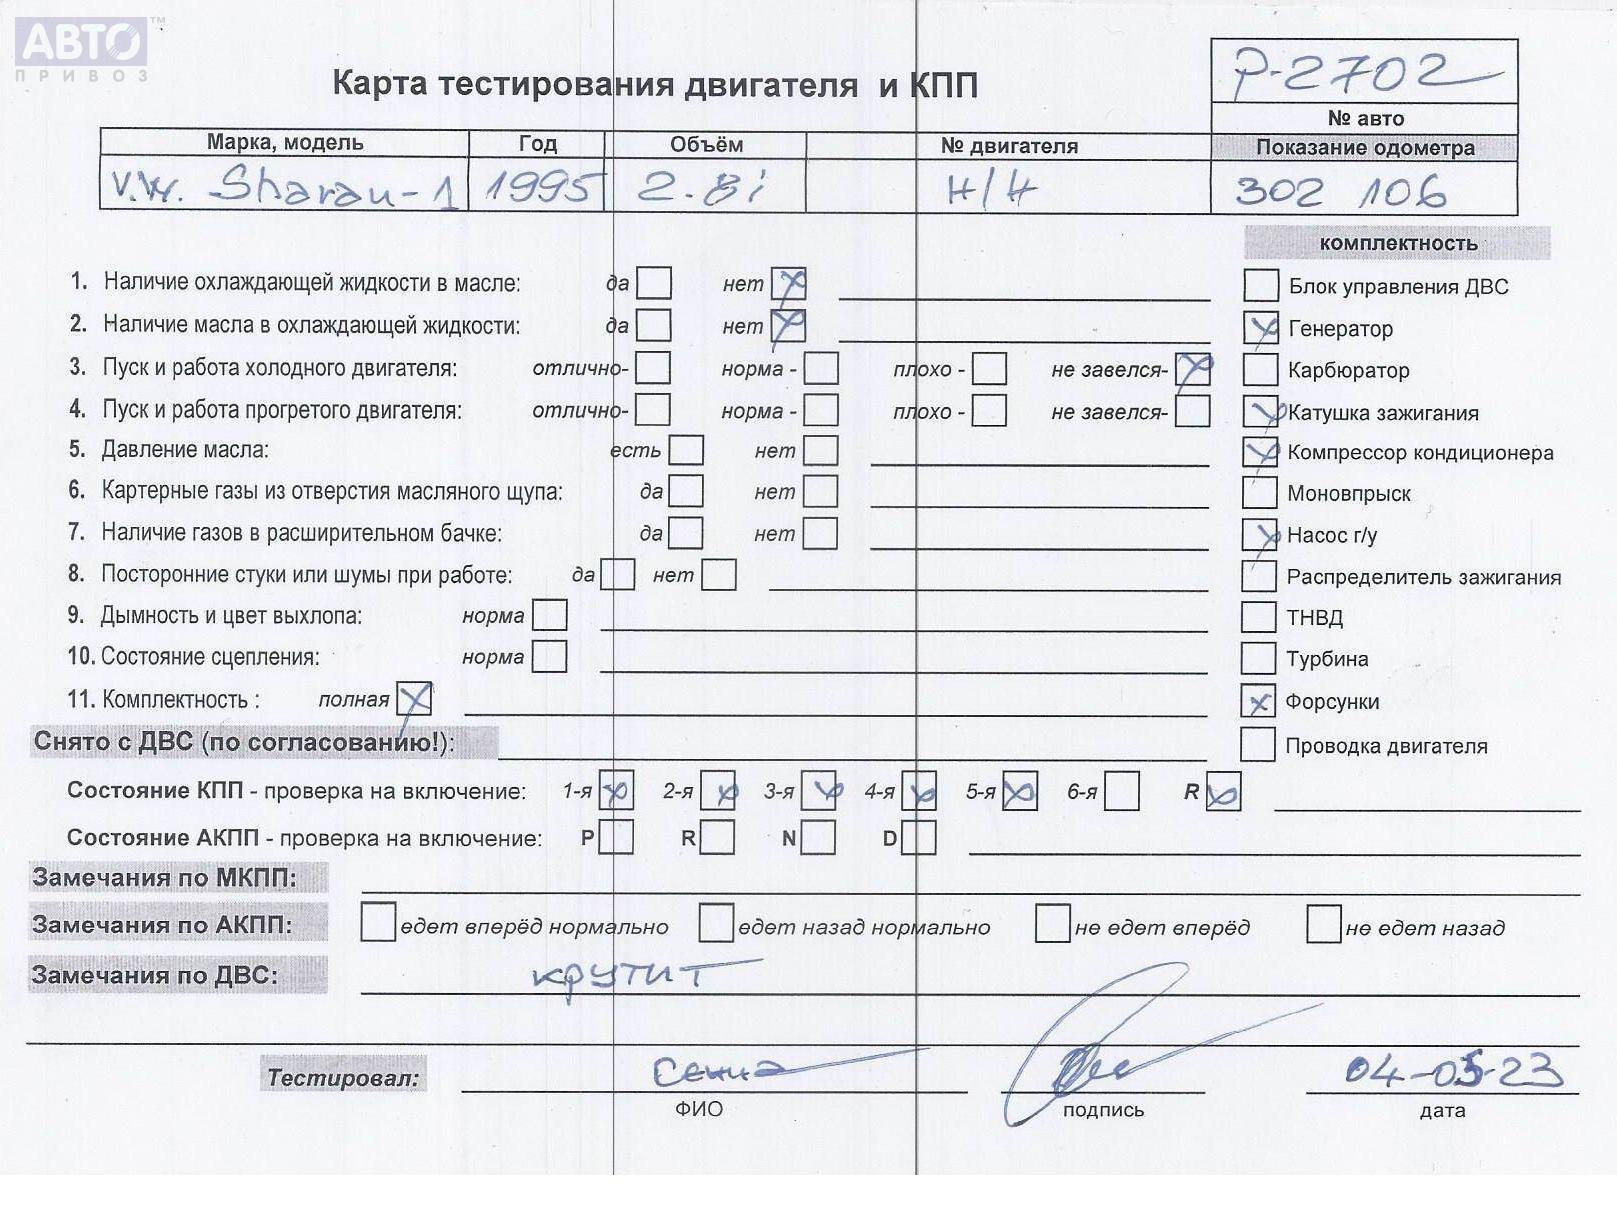 АВТО™
ПРИВОЗ
Карта тестирования двигателя и КПП
P-2702
№ авто
Марка, модель Год Объём № двигателя Показание одометра
V.W. Sharan-1 1995 2.8i Н/Н 302 106
комплектность
1. Наличие охлаждающей жидкости в масле: да нет x Блок управления ДВС
2. Наличие масла в охлаждающей жидкости: да нет x x Генератор
3. Пуск и работа холодного двигателя: отлично- норма - плохо - не завелся- x Карбюратор
4. Пуск и работа прогретого двигателя: отлично- норма - плохо - не завелся- x Катушка зажигания
5. Давление масла: есть нет x Компрессор кондиционера
6. Картерные газы из отверстия масляного щупа: да нет Моновпрыск
7. Наличие газов в расширительном бачке: да нет x Насос г/у
8. Посторонние стуки или шумы при работе: да нет Распределитель зажигания
9. Дымность и цвет выхлопа: норма ТНВД
10. Состояние сцепления: норма Турбина
11. Комплектность : полная x x Форсунки
Снято с ДВС (по согласованию!): Проводка двигателя
Состояние КПП - проверка на включение: 1-я x 2-я x 3-я x 4-я x 5-я x 6-я R x
Состояние АКПП - проверка на включение: P R N D
Замечания по МКПП:
Замечания по АКПП: едет вперёд нормально едет назад нормально не едет вперёд не едет назад
Замечания по ДВС: крутит
Тестировал: 04-05-23
ФИО подпись дата